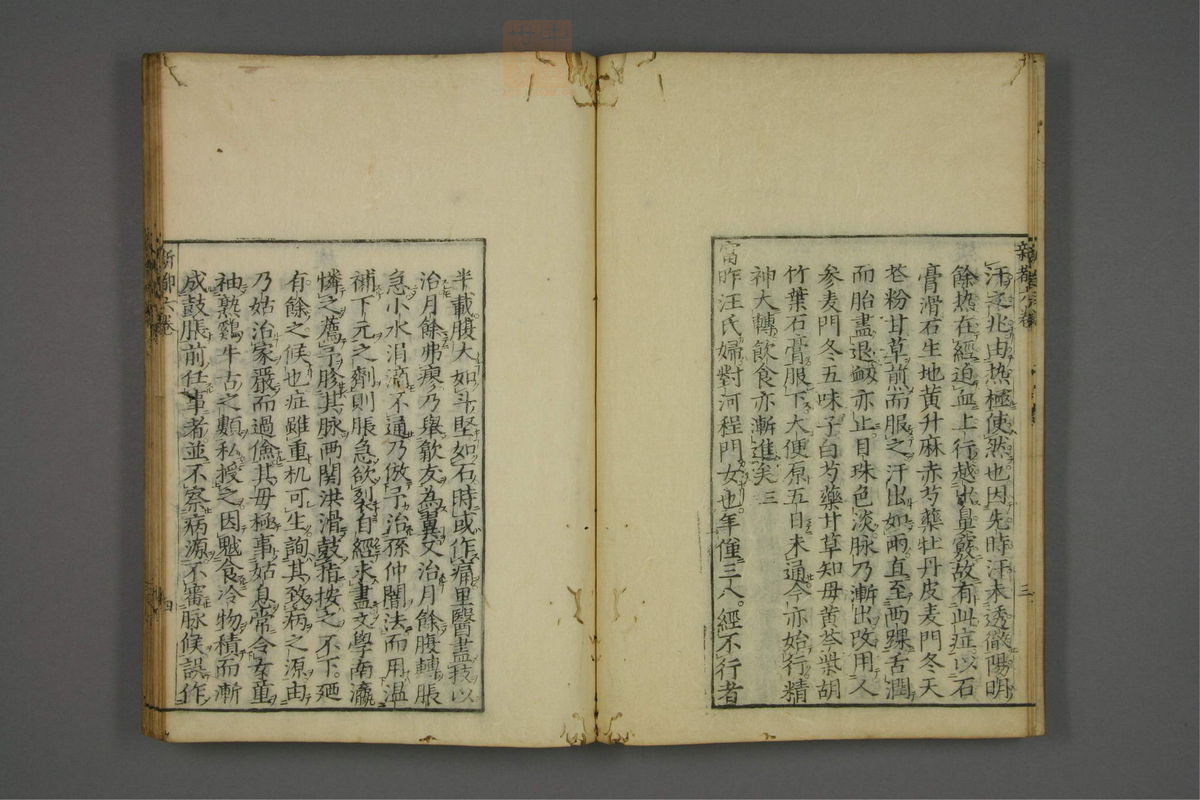 汗之兆由热極使然也因先時汗未透徹陽明
餘热在經迫血上行越出鼻竅故有此症以石
膏滑石生地黄升麻赤芍藥牡丹皮麦門冬天
苍粉甘草煎而服之汗出如雨直至两踝舌潤
而胎盡退衂亦止目珠色淡脉乃漸出改用人
参麦門冬五味子白芍藥甘草知母黄芩柴胡
竹葉石膏服下大便原五日未通今亦始行精
神大轉飲食亦漸進矣三
富昨汪氏婦對河程門女也年僅三八經不行者
半載腹大如斗堅如石時或作痛里醫盡技以
治月餘弗瘳乃舉歙友為翼又治月餘腹轉脹
急小水涓滴不通乃倣予治孫仲闇法而用温
補下元之劑則脹急欲裂自經求盡文學南瀛
憐之薦予胗其脉两関洪滑鼓指按之不下廼
有餘之候也症雖重机可生詢其致病之源由
乃姑治家嚴而過儉其毋極事姑息常令女童
袖熟鷄牛舌之類私授之因魆食冷物積而漸
成鼓脹前任事者並不察病源不審脉候誤作